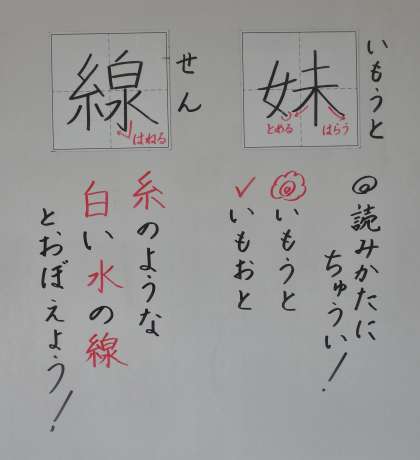 いもうと
妹
とめる
はらう
◎読みかたに
ちゅうい!
いもうと
✓いもおと
せん
線
はねる
糸のような
白い水の線
と、おぼえよう!